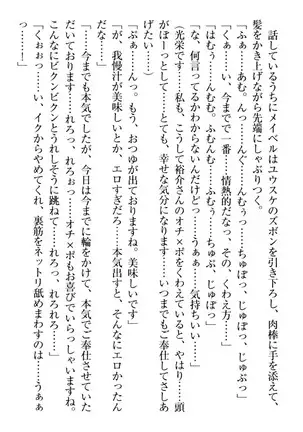 話しているうちにメイベルはユウスケのズボンを引き下ろし、肉棒に手を添えて、
髪をかき上げながら先端にしゃぶりつく。
「ふぁ……あむ。んっ……んぐ……んむぅっ……ちゅぷっ、じゅぽっ、じゅぷっ」
「くぁっ……い、今まで一番……情熱的だなっ、その、くわえ方……」
「はむぅ……むふぅ、ふむむ……ちゅぷ、じゅぽっ、じゅぷ……」
「な、何言ってるかわからないんだけどっ……うぁぁ……気持ちいい……」
「光栄です……私も、こうして裕介さんのオチ×ポをくわえていると、やはり……頭
がぼーっとして……とても、幸せな気分になります……いつまでもご奉仕してさしあ
げたい……」
「ふぁ……んっ。もう、おつゆが出ておりますね。美味しいです」
「が、我慢汁が美味しいとか、エロすぎだろ……本気出すと、そんなにエロかったん
だな」
「……今までも本気でしたが、今日は今までに輪をかけて、本気でご奉仕させていた
だいております……れろっ、れろぉ……オチ×ポもお喜びでいらっしゃいますね……
こんなにビクンビクンとうれしそうに跳ねて……れろっ、れろれろ……」
「くぉぉっ……い、イクからやめてくれ、裏筋をネットリ舐めまわすのは……うぁぁ
っ……！」